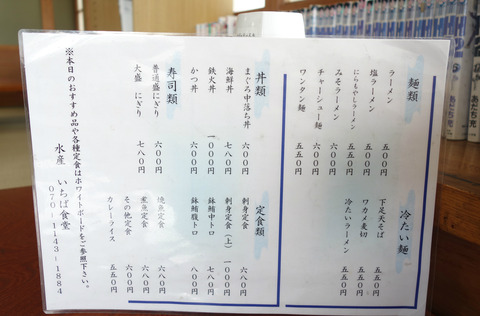 麺類
ラーメン 五〇〇円
塩ラーメン
にらもやしラーメン 五五〇円
みそラーメン 六〇〇円
チャーシュー麺 六〇〇円
ワンタン麺 五五〇円
冷たい麺
下足天そば 五五〇円
ワカメ麦切 五五〇円
冷たいラーメン 五五〇円
丼類
まぐろ中落ち丼 六〇〇円
海鮮丼 七八〇円
鉄火丼 一〇〇〇円
かつ丼 六〇〇円
寿司類
普通盛にぎり 六〇〇円
大盛 にぎり 七八〇円
定食類
刺身定食 六八〇円
刺身定食(上) 一〇〇〇円
鉢鮪中トロ 七八〇円
鉢鮪腹トロ 八〇〇円
焼魚定食 六八〇円
煮魚定食 六八〇円
その他定食 六八〇円
カレーライス 五五〇円
※本日のおすすめ品や各種定食はホワイトボードをご参照下さい。
水産 いちば食堂
070-1143-1884
あだち充
あだち充